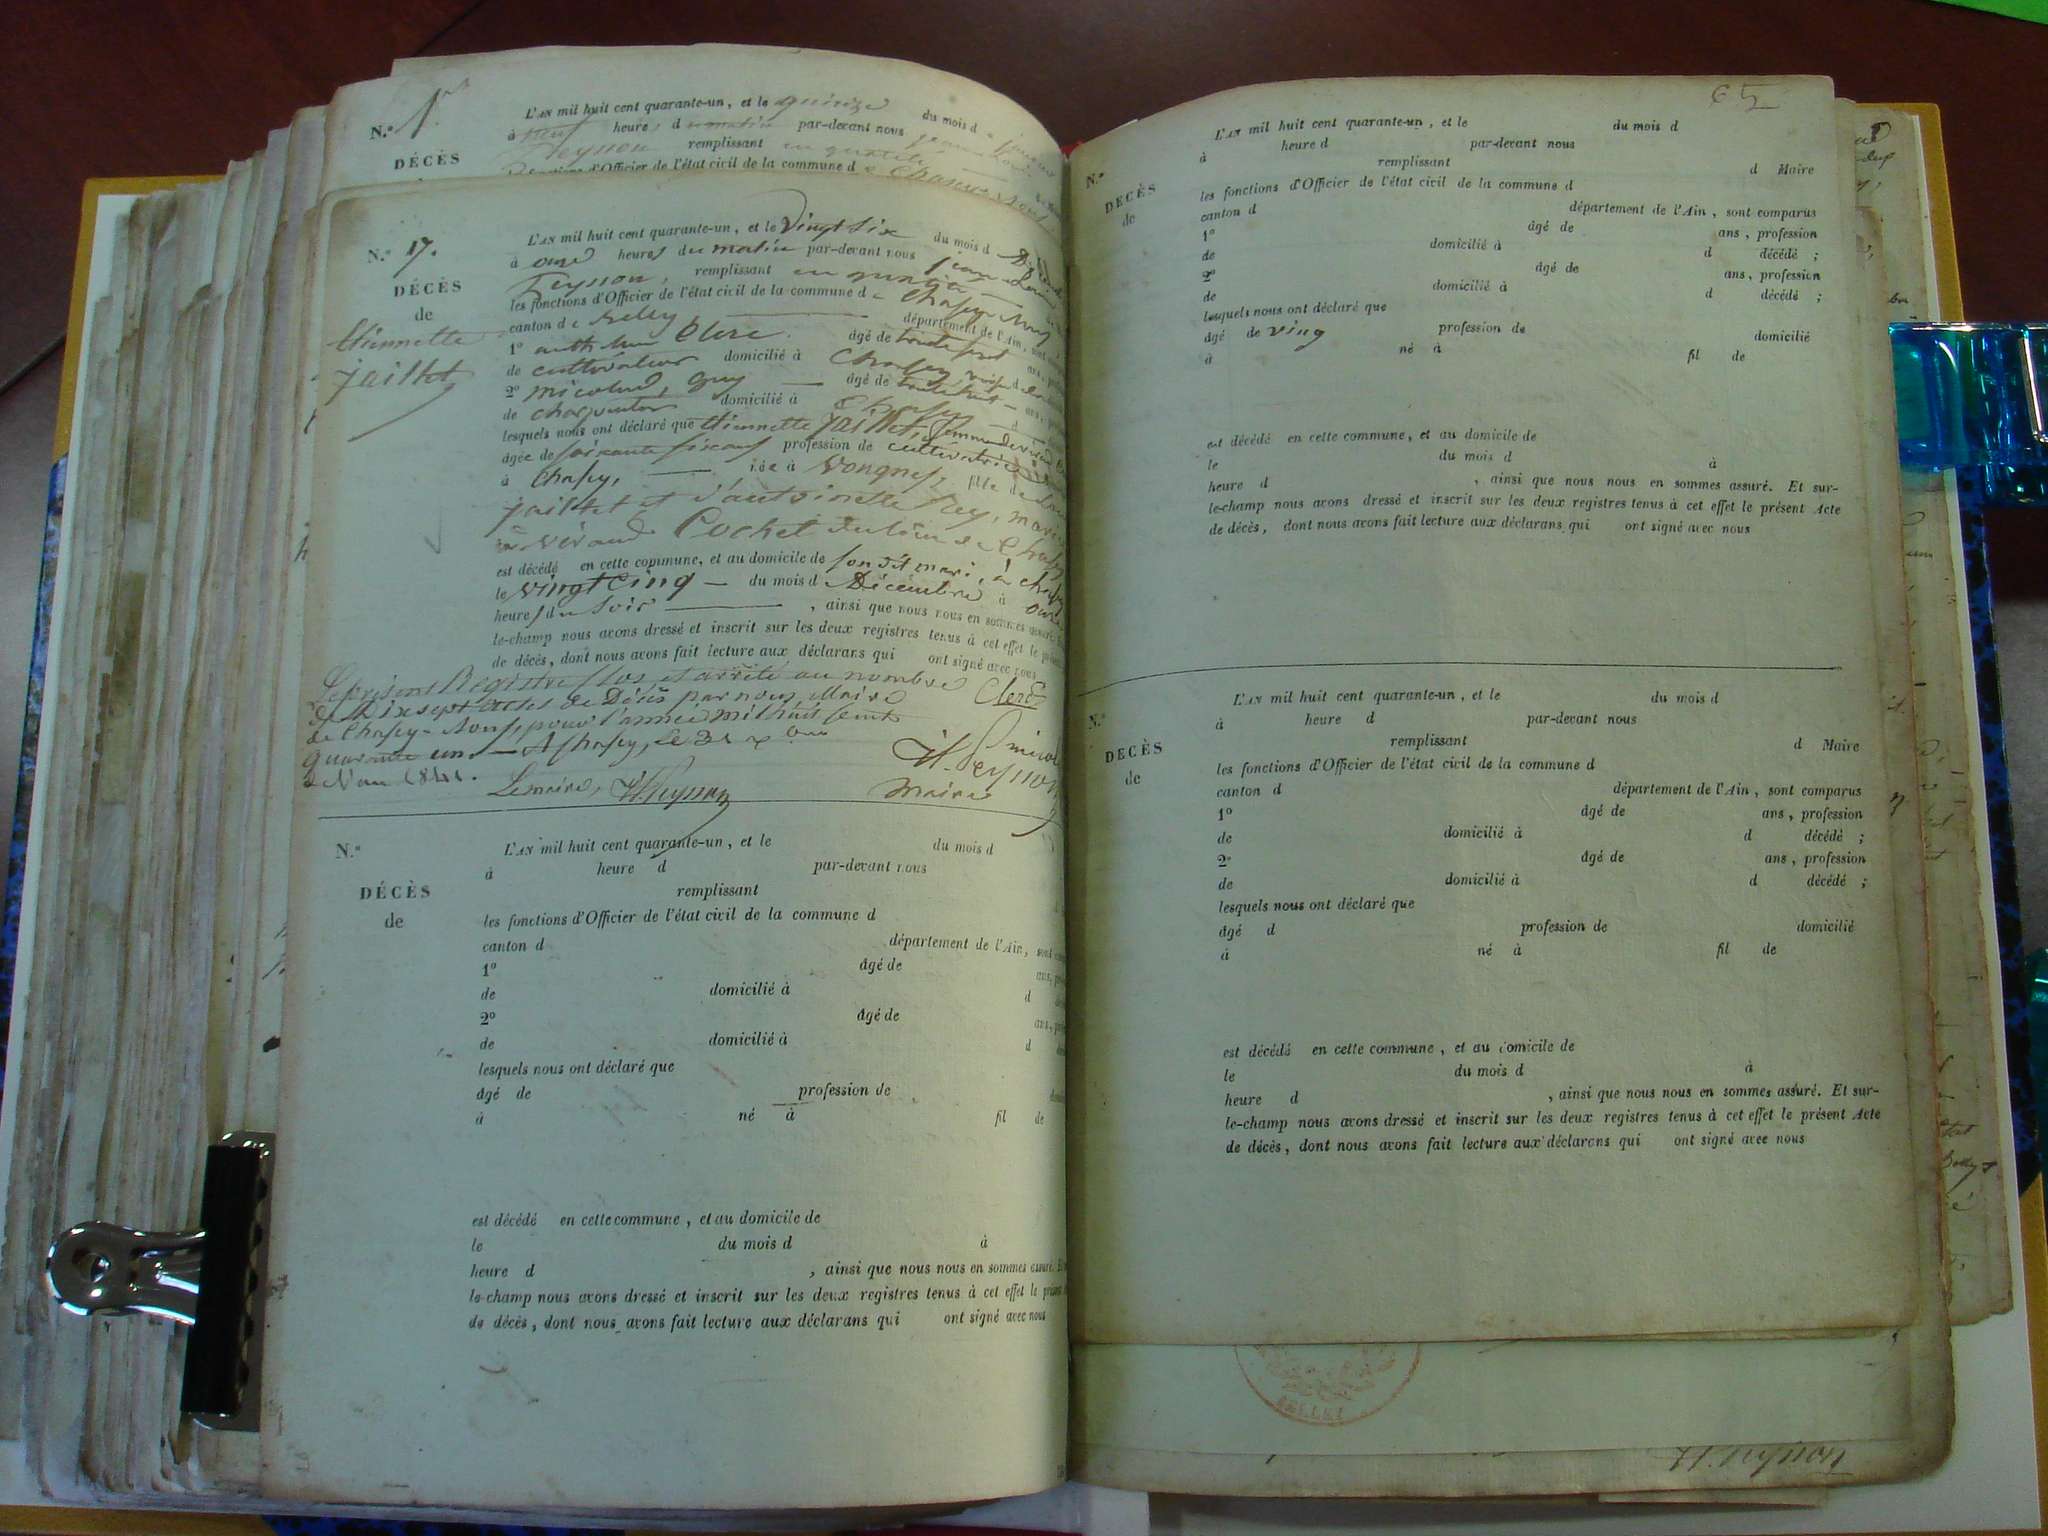 N.º 1.er
L'AN mil huit cent quarante-un, et le quinze du mois d
à neuf heures d matin par-devant nous jean
Peysson remplissant en qualité
DÉCÈS
les fonctions d'Officier de l'état civil de la commune de
N.º 17.
L'AN mil huit cent quarante-un, et le vingt six du mois d
à onze heures du matin par-devant nous jean
Peysson, remplissant en qualité
DÉCÈS
les fonctions d'Officier de l'état civil de la commune de
de
canton de Belley département de l'Ain,
Etiennette
1º Clerc âgé de trente sept
jaillet
de cultivateur domicilié à Chazey
2º guy âgé de trente huit
de charpentier domicilié à Chazey
lesquels nous ont déclaré que Etiennette jaillet, femme
âgée de soixante six ans profession de cultivatrice
à Chazey, née à Vongnes, fille de
jaillet et d'antoinette Rey,
à Cochet
est décédé en cette commune, et au domicile de son dit mari, à
le vingt cinq du mois d Décembre à onze
heures du Soir, ainsi que nous nous en sommes assuré.
le-champ nous avons dressé et inscrit sur les deux registres tenus à cet effet le
de décès, dont nous avons fait lecture aux déclarans qui ont signé avec nous
Le présent Registre Clos et arrêté au nombre
de Dix sept actes de Décès par nous Maire
Clerc
de Chazey-Bons, pour l'année mil huit cent
quarante un A Chazey, le 31
1841.
Le maire, Peysson
Peysson
maire
N.º
L'AN mil huit cent quarante-un, et le du mois d
à heure d par-devant nous
remplissant
DÉCÈS
de
les fonctions d'Officier de l'état civil de la commune d
canton d département de l'Ain,
1º âgé de ans,
de domicilié à d
2º âgé de ans,
de domicilié à d
lesquels nous ont déclaré que
âgé de profession de
à né à fil de
est décédé en cette commune, et au domicile de
le du mois d à
heure d , ainsi que nous nous en sommes assuré.
le-champ nous avons dressé et inscrit sur les deux registres tenus à cet effet le
de décès, dont nous avons fait lecture aux déclarans qui ont signé avec nous
65
N.º
L'AN mil huit cent quarante-un, et le du mois d
à heure d par-devant nous
remplissant d Maire
DÉCÈS
de
les fonctions d'Officier de l'état civil de la commune d
canton d département de l'Ain, sont comparus
1º âgé de ans, profession
de domicilié à d décédé ;
2º âgé de ans, profession
de domicilié à d décédé ;
lesquels nous ont déclaré que
âgé de ving profession de domicilié
à né à fil de
est décédé en cette commune, et au domicile de
le du mois d à
heure d , ainsi que nous nous en sommes assuré. Et sur-
le-champ nous avons dressé et inscrit sur les deux registres tenus à cet effet le présent Acte
de décès, dont nous avons fait lecture aux déclarans qui ont signé avec nous
N.º
L'AN mil huit cent quarante-un, et le du mois d
à heure d par-devant nous
remplissant d Maire
DÉCÈS
de
les fonctions d'Officier de l'état civil de la commune d
canton d département de l'Ain, sont comparus
1º âgé de ans, profession
de domicilié à d décédé ;
2º âgé de ans, profession
de domicilié à d décédé ;
lesquels nous ont déclaré que
âgé d profession de domicilié
à né à fil de
est décédé en cette commune, et au domicile de
le du mois d à
heure d , ainsi que nous nous en sommes assuré. Et sur-
le-champ nous avons dressé et inscrit sur les deux registres tenus à cet effet le présent Acte
de décès, dont nous avons fait lecture aux déclarans qui ont signé avec nous
BELLEY
Peysson